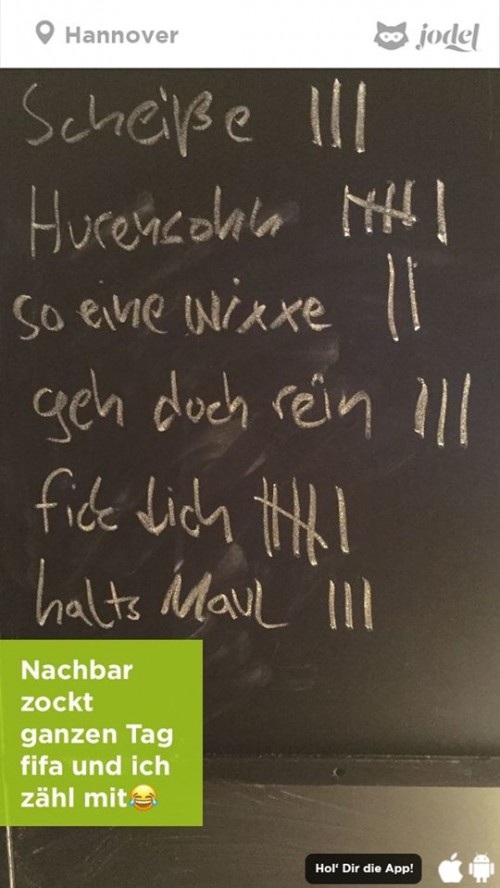 Hannover jodel
Scheiße |||
Hurensohn 卌 |
so eine wixxe ||
geh doch rein |||
fick dich 卌 |
halts Maul |||
Nachbar
zockt
ganzen Tag
fifa und ich
zähl mit😂
Hol' Dir die App!